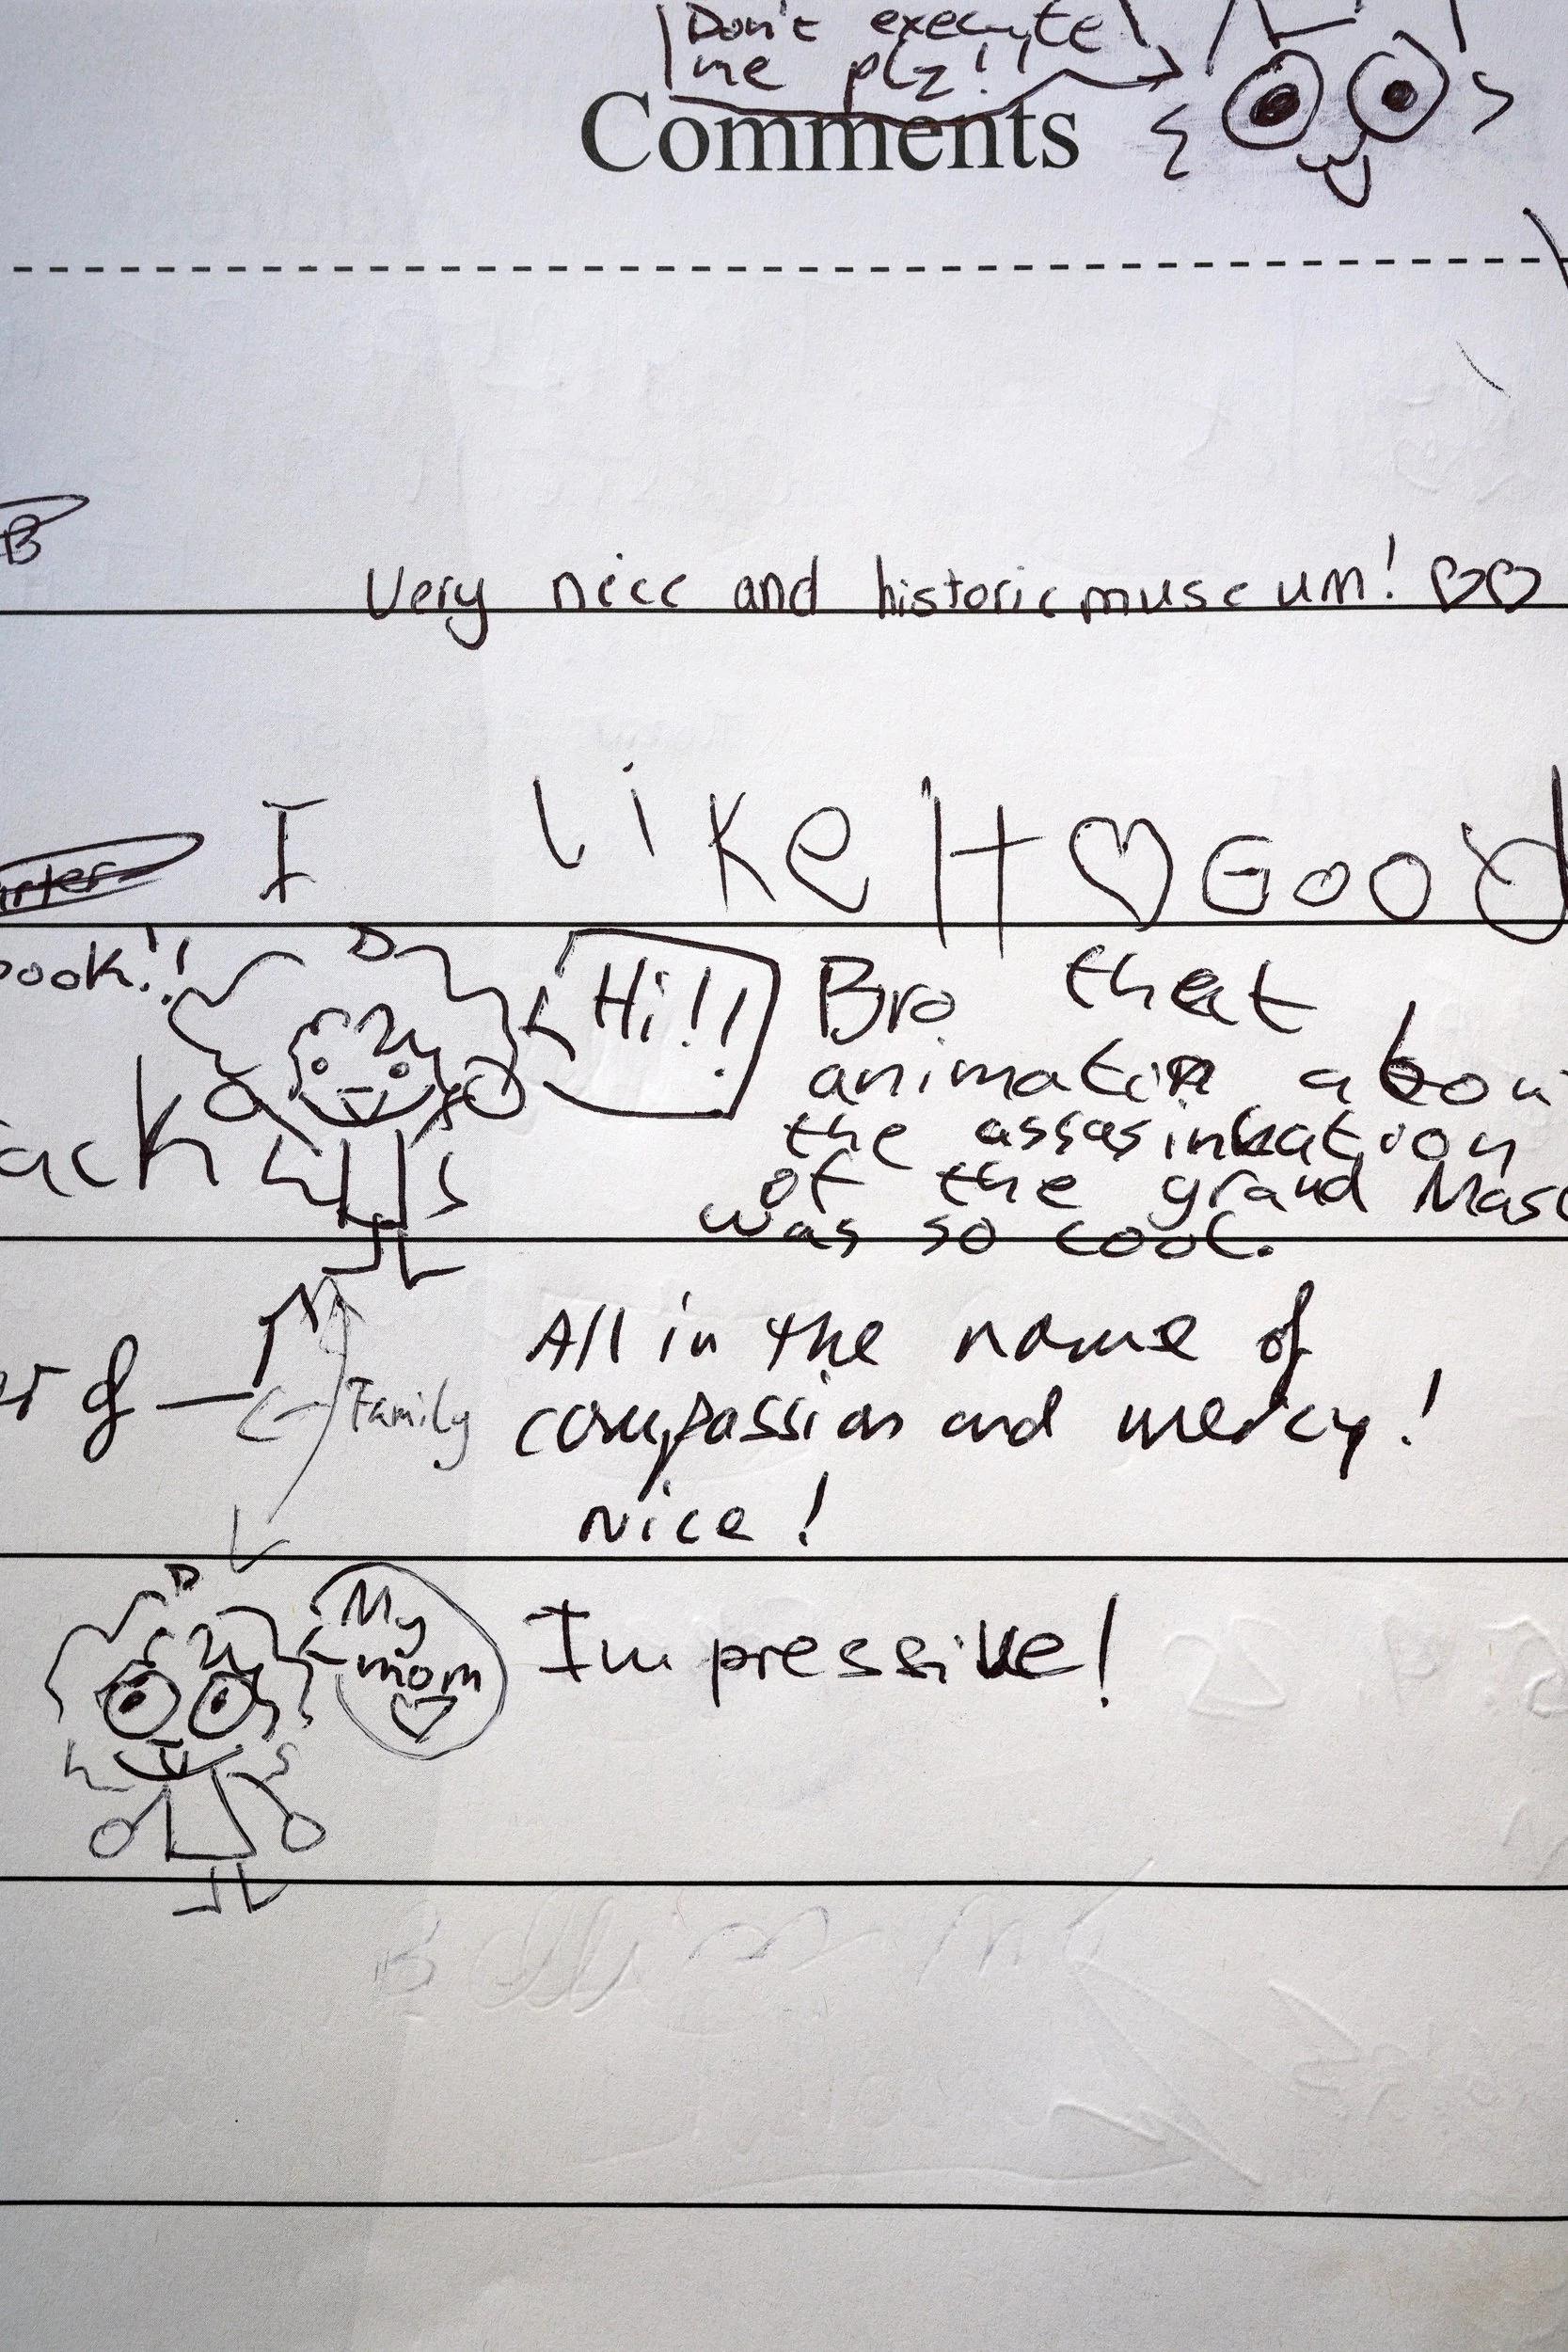 Don't execute
me plz!!
Comments
B
Very nice and historic museum! ♡♡
I like It ♡ Good
book!!
Hi!!
Bro that
animation abou
the assasination
of the grand Mast
was so cool.
ack
All in the name of
compassion and mercy!
nice!
Family
My
mom
♡
Impressive!